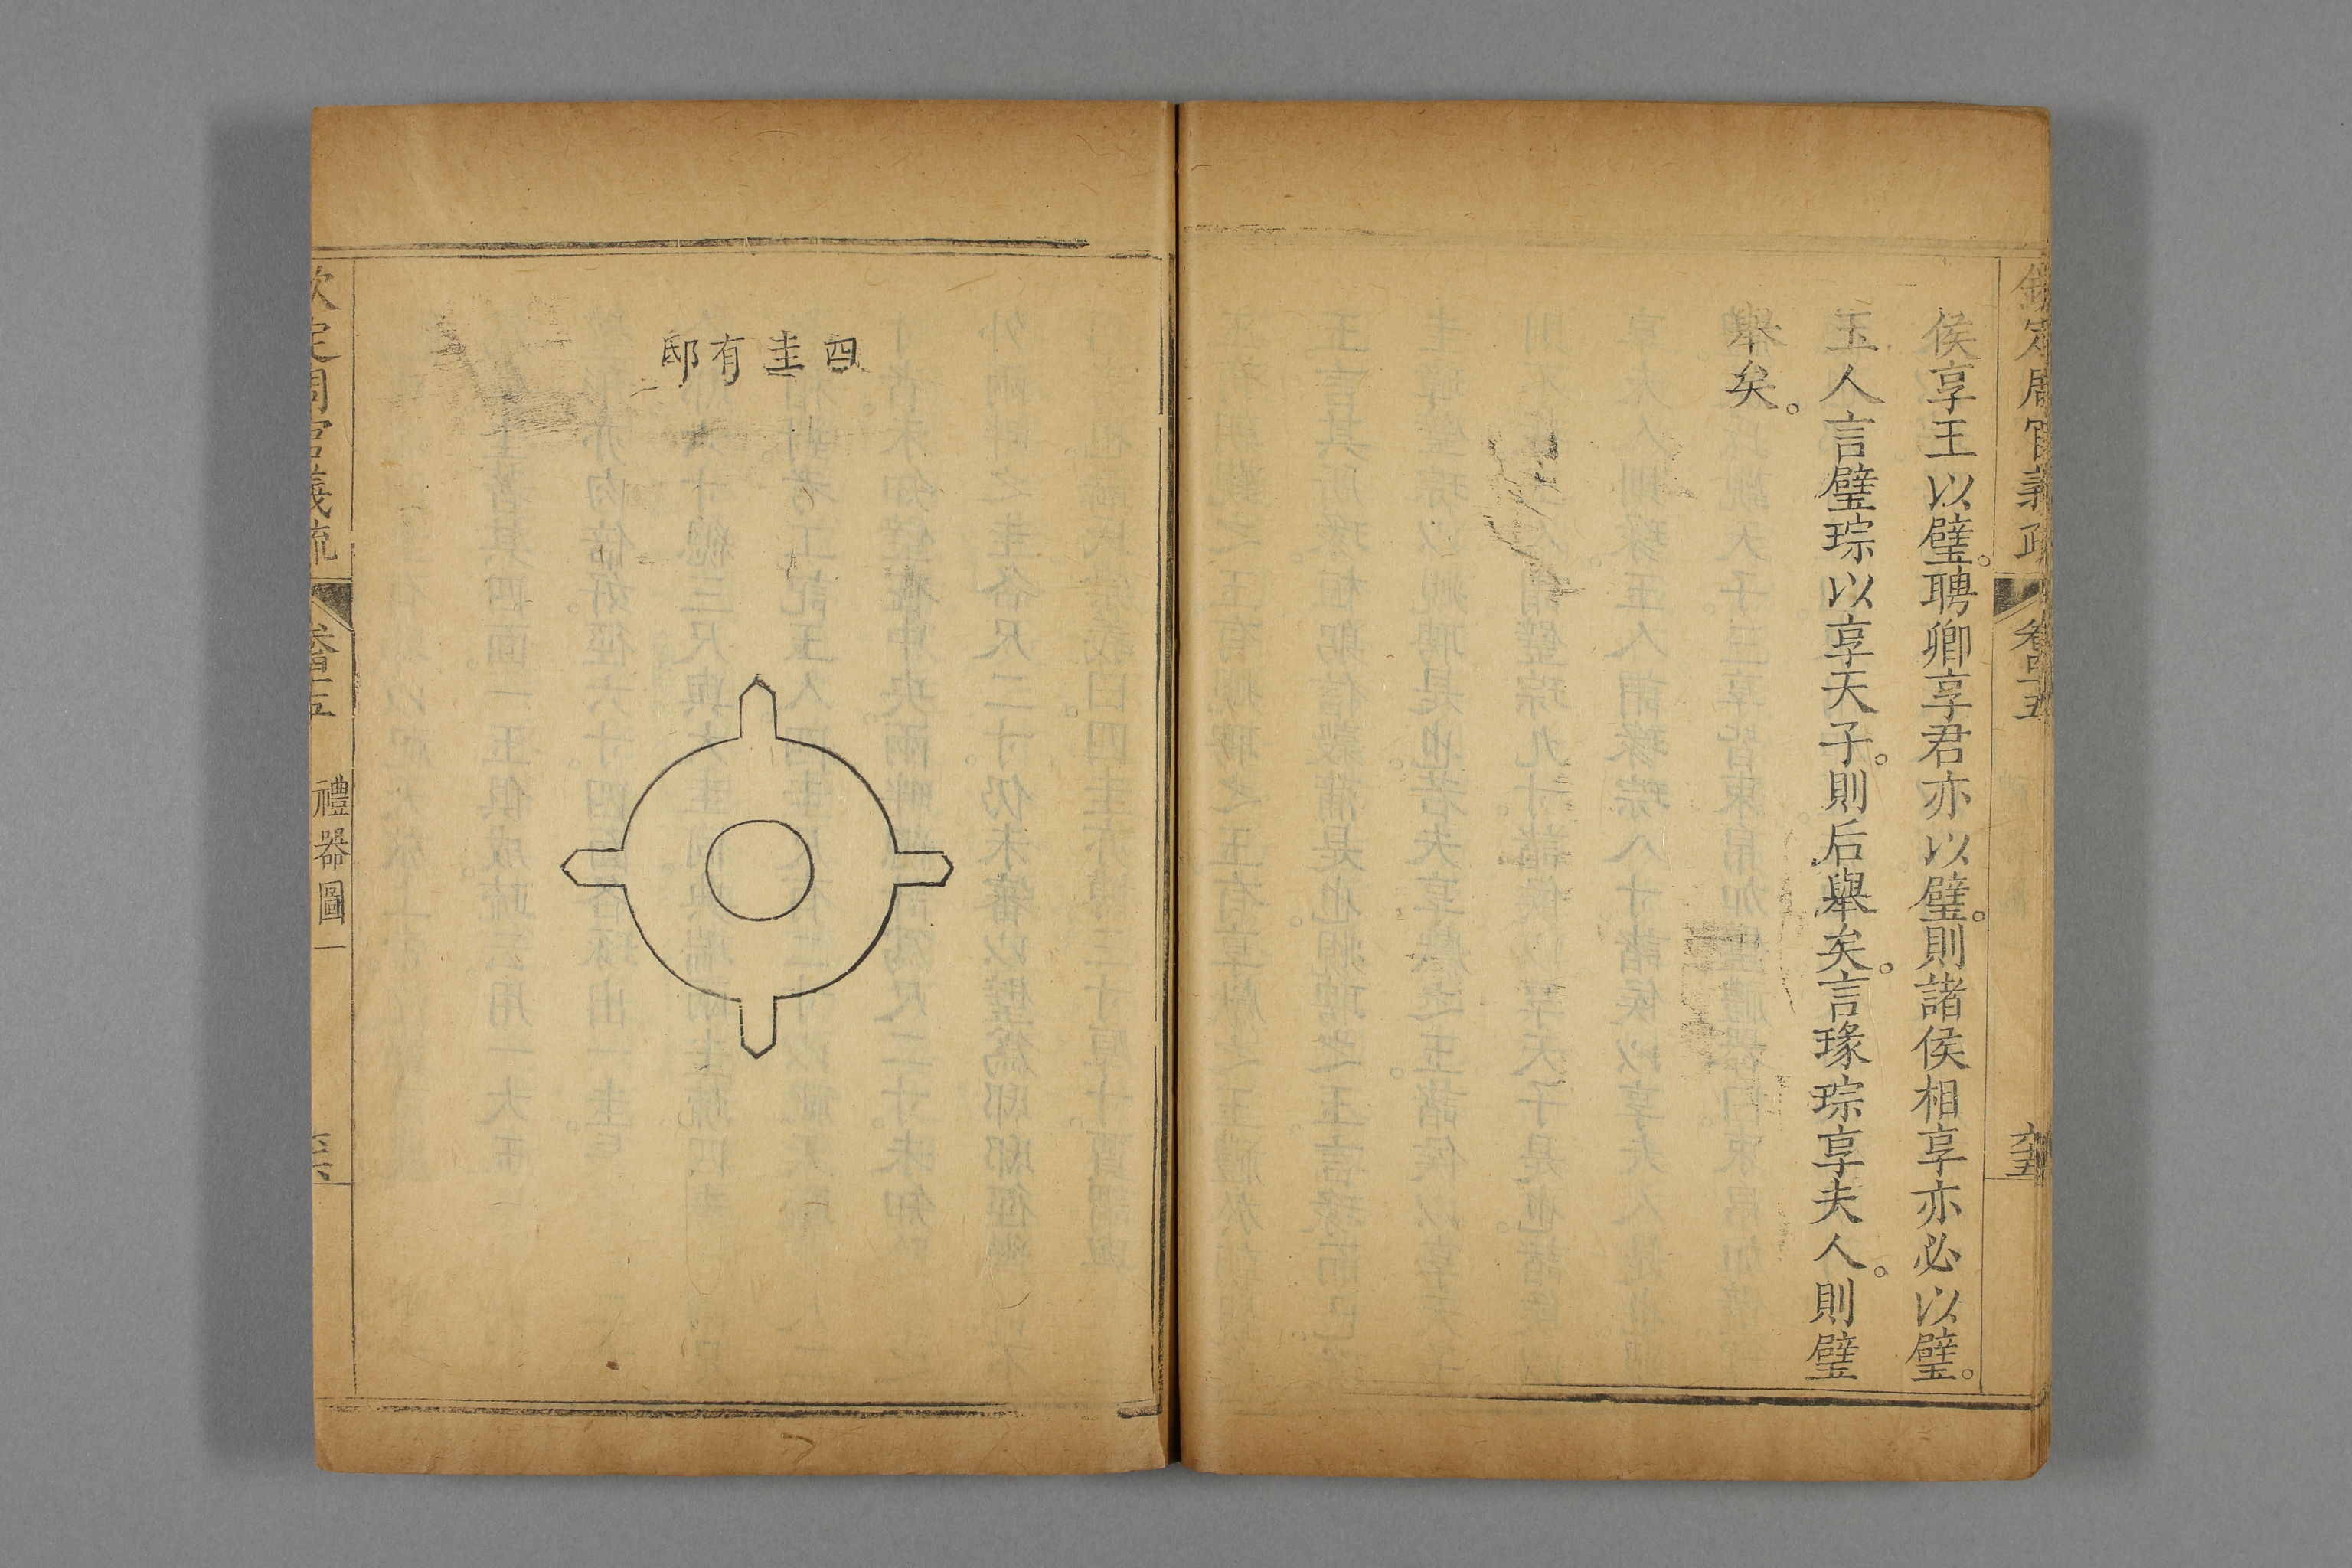 欽定周官義疏
卷四十五
六十五
侯享王以璧。聘卿享君亦以璧。則諸侯相享亦必以璧。
玉人言璧琮以享天子。則后舉矣。言瑑琮享夫人。則璧
舉矣。
四圭有邸
欽定周官義疏
卷四十五
禮器圖一